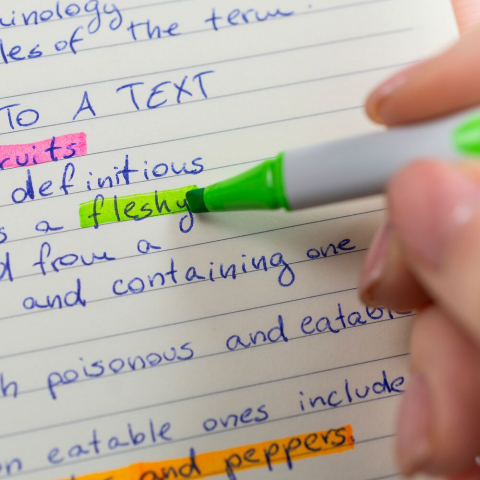 inology
les of the term.
TO A TEXT
ruits
definitions
s a fleshy
d from a
and containing one
h poisonous and eatable
n eatable ones include
and peppers.